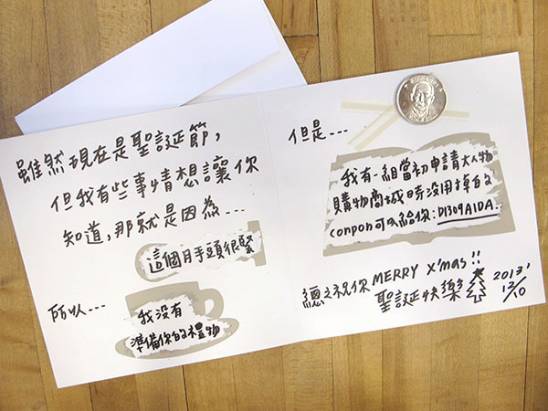 雖然現在是聖誕節,
但我有些事情想讓你
知道,那就是因為...
這個月手頭很緊
所以...
我沒有
準備你的禮物
但是...
我有一組當初申請大人物
購物商城時沒用掉的
conpon可以給你:D1309AIDA.
總之祝你 MERRY X'mas!!
聖誕快樂
2013'
12/10